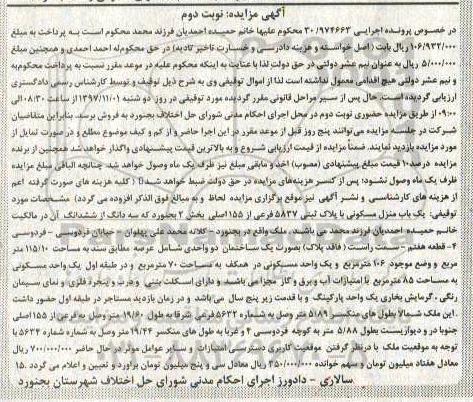 آگهی مزایده: نوبت دوم
در خصوص پرونده اجرایی ۳۰/۹۷۴۶۶۳ محکوم علیها خانم حمیده احمدیان فرزند محمد محکوم است به پرداخت به مبلغ
۱۰۶/۹۳۲/۰۰۰ ریال بابت (اصل خواسته و هزینه دادرسی و خسارت تاخیر تادیه) در حق محکوم‌له احمد احمدی و همچنین مبلغ
۵/۰۰۰/۰۰۰ ریال به عنوان نیم عشر دولتی در حق دولت لذا با عنایت به اینکه محکوم علیه در موعد مقرر نسبت به پرداخت محکوم‌به
و نیم عشر دولتی هیچ اقدامی معمول نداشته است لذا از اموال توقیفی وی به شرح ذیل توقیف و توسط کارشناس رسمی دادگستری
ارزیابی گردیده است. حال پس از سیر مراحل قانونی مقرر گردیده مورد توقیفی در روز دو شنبه ۱۳۹۷/۱۱/۰۱ از ساعت ۰۸:۳۰ الی
۰۹:۰۰ از طریق مزایده حضوری نوبت دوم در محل اجرای احکام مدنی شورای حل اختلاف بجنورد به فروش برسد. بنابراین متقاضیان
شرکت در جلسه مزایده می‌توانند پنج روز قبل از موعد مقرر در این اجرا حاضر و از کم و کیف موضوع مطلع و در صورت تمایل از
مورد مزایده بازدید نمایند. ضمناً مزایده از قیمت ارزیابی شروع و به بالاترین قیمت پیشنهادی واگذار خواهد شد همچنین از برنده
مزایده درصد۱۰ قیمت مبلغ پیشنهادی (مصوب) اخذ و مابقی مبلغ نیز ظرف یک ماه وصول خواهد شد. چنانچه الباقی مبلغ مزایده
ظرف یک ماه وصول نشود: پس از کسر هزینه‌های مزایده در حق دولت ضبط خواهد شد.( کلیه هزینه های صورت گرفته اعم
از هزینه های کارشناسی و نشر آگهی نیز موقع برگزاری مزایده لحاظ و به مبالغ فوق الذکر افزوده می گردد) مشخصات مورد
توقیفی: یک باب منزل مسکونی با پلاک ثبتی ۵۸۳۷ فرعی از ۱۵۵ اصلی بخش ۲ بجنورد که سه دانگ از ششدانگ آن در مالکیت
خانم حمیده احمدیان فرزند محمد می باشد. ملک واقع در بجنورد - کلاته محمد علی پهلوان - خیابان فردوسی - فردوسی
۴- قطعه هفتم - سمت راست (فاقد پلاک) بصورت یک ساختمان دو واحدی شامل عرصه مطابق سند به مساحت ۱۱۵/۱۰ متر
مربع و وضع موجود ۱۰۶ مترمربع و یک واحد مسکونی در همکف به مساحت ۷۰ مترمربع و در طبقه اول یک واحد مسکونی
به مساحت ۸۵ مترمربع با امتیازات آب و برق و گاز مجزا می باشند و دارای اسکلت بتنی و درب و پنجره فلزی و نمای سیمان
رنگی ، گرمایش بخاری یک واحد پارکینگ و با قدمت زیر پنج سال می باشد و در زمان بازدید مستاجر در طبقه اول حضور داشت
.این ملک شمالا بطول های منکسر ۵/۸۹ متر وصل به شماره ۵۶۳۲ فرعی شرقا به طول ۱۹/۶۰ متر وصل به فرعی از ۱۵۵ اصلی
جنوبا در و دیواریست بطول ۵/۸۸ متر به کوچه فردوسی ۴ و غربا به طول های منکسر ۱۹/۴۴ متر وصل به شماره شماره ۵۶۳۴ با
توجه به موقعیت ملک با درنظر گرفتن موقعیت کاربری دسترسی امتیازات و سایر عوامل موثر در حال حاضر ۷۰۰/۰۰۰/۰۰۰ ریال
معادل هفتاد میلیون تومان و سهم خوانده ۳۵۰/۰۰۰/۰۰۰ ریال معادل سی و پنج میلیون تومان برآورد و تعیین و اعلام می گردد .۱۵
سالاری - دادورز اجرای احکام مدنی شورای حل اختلاف شهرستان بجنورد